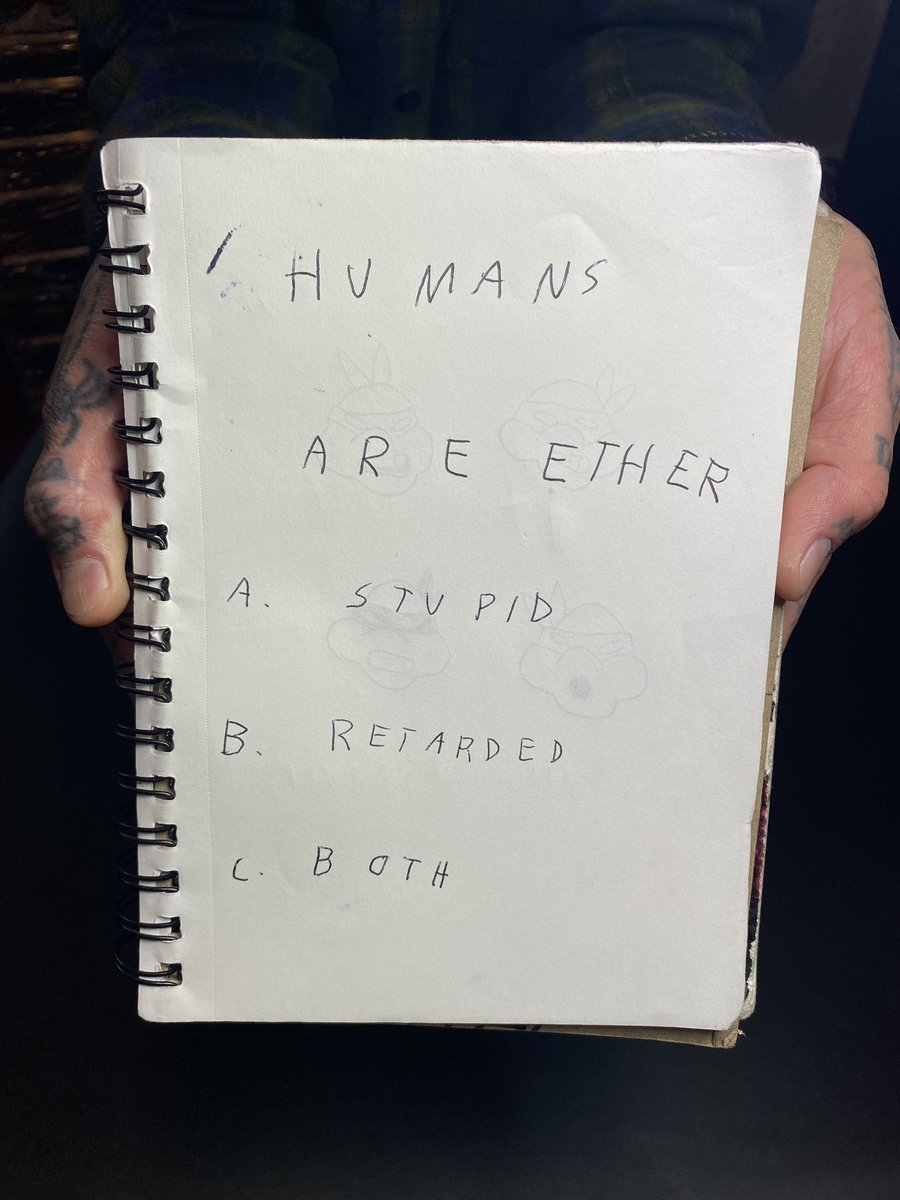 HUMANS
ARE ETHER
A. STUPID
B. RETARDED
C. BOTH